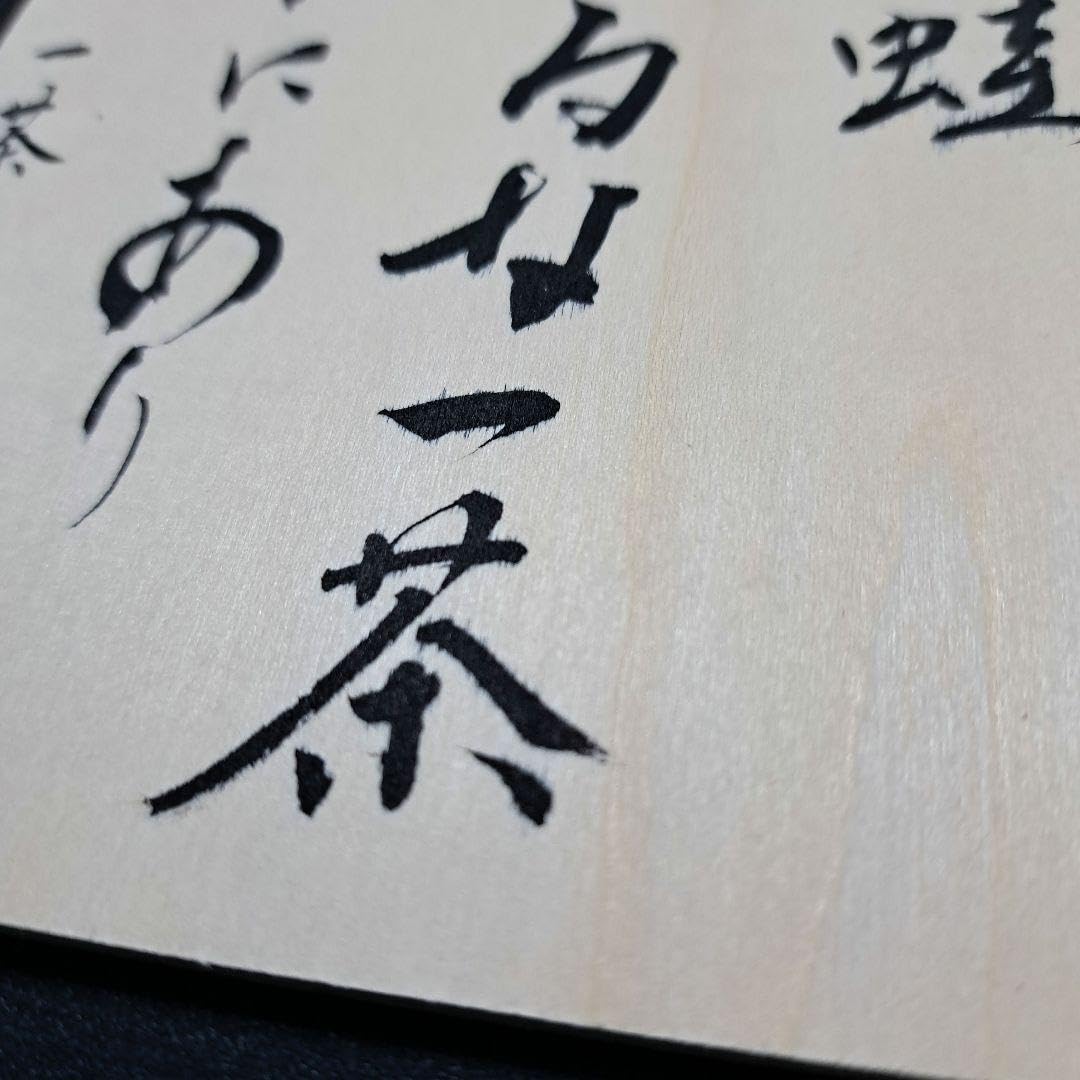 蛙
るな一茶
にあり
一茶